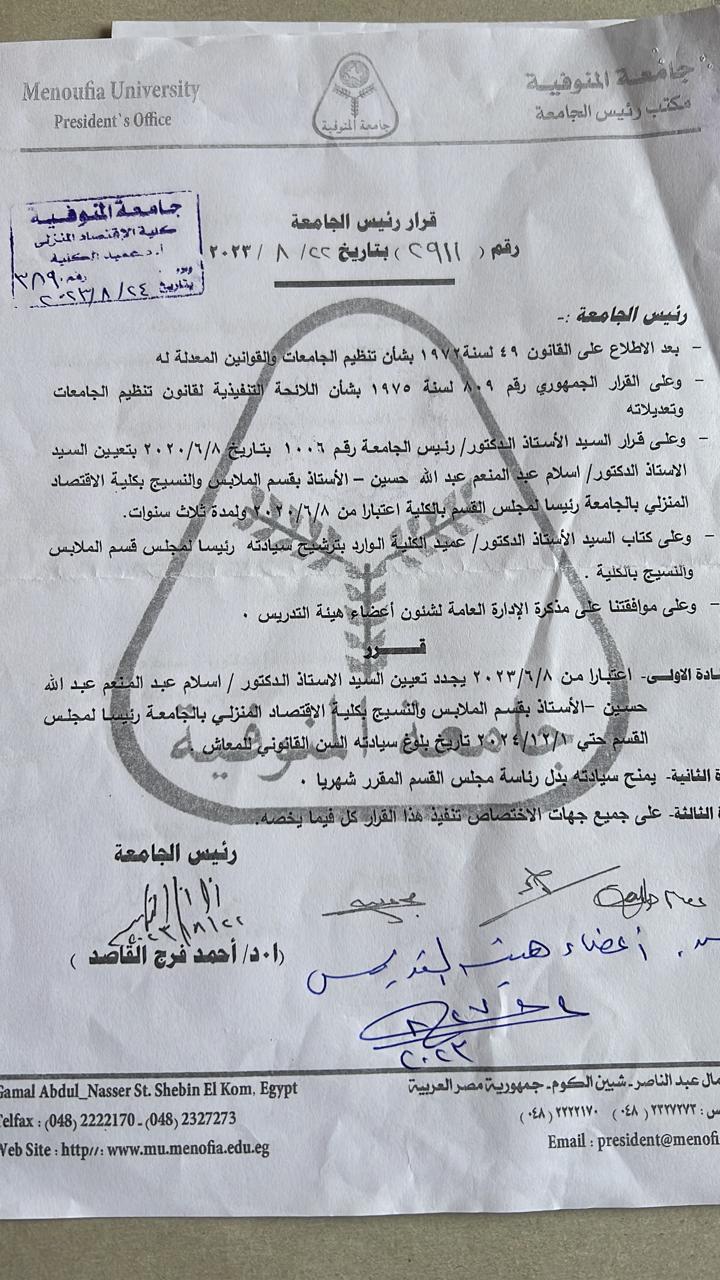 Menoufia University
President`s Office
جامعة المنوفية
جامعة المنوفية
مكتب رئيس الجامعة
جامعة المنوفية
كلية الاقتصاد المنزلى
أ.د عميد الكلية
رقم ٣٨٩٠
بتاريخ ٢٠٢٣/٨/٢٤
قرار رئيس الجامعة
رقم ( ٢٩١١ ) بتاريخ ٢٢ / ٨ / ٢٠٢٣
رئيس الجامعة :-
- بعد الاطلاع على القانون ٤٩ لسنة ١٩٧٢ بشأن تنظيم الجامعات والقوانين المعدلة له
- وعلى القرار الجمهوري رقم ٨٠٩ لسنة ١٩٧٥ بشأن اللائحة التنفيذية لقانون تنظيم الجامعات
وتعديلاته
- وعلى قرار السيد الأستاذ الدكتور/ رئيس الجامعة رقم ١٠٠٦ بتاريخ ٢٠٢٠/٦/٨ بتعيين السيد
الاستاذ الدكتور/ اسلام عبد المنعم عبد الله حسين – الأستاذ بقسم الملابس والنسيج بكلية الاقتصاد
المنزلي بالجامعة رئيسا لمجلس القسم بالكلية اعتبارا من ٢٠٢٠/٦/٨ ولمدة ثلاث سنوات.
- وعلى كتاب السيد الأستاذ الدكتور/ عميد الكلية الوارد بترشيح سيادته رئيسا لمجلس قسم الملابس
والنسيج بالكلية .
- وعلى موافقتنا على مذكرة الإدارة العامة لشئون أعضاء هيئة التدريس .
قـــــرر
ادة الاولى- اعتبارا من ٢٠٢٣/٦/٨ يجدد تعيين السيد الاستاذ الدكتور / اسلام عبد المنعم عبد الله
حسين –الأستاذ بقسم الملابس والنسيج بكلية الاقتصاد المنزلي بالجامعة رئيسا لمجلس
القسم حتي ٢٠٢٤/١٢/١ تاريخ بلوغ سيادته السن القانوني للمعاش .
ة الثانية- يمنح سيادته بدل رئاسة مجلس القسم المقرر شهريا .
ة الثالثة- على جميع جهات الاختصاص تنفيذ هذا القرار كل فيما يخصه.
جامعة المنوفية
رئيس الجامعة
٢٠٢٣/٨/٢٢
(ا.د/ أحمد فرج القاصد )
أعضاء هيئة التدريس
٢٠٢٣
Gamal Abdul_Nasser St. Shebin El Kom, Egypt
Telfax : (048) 2222170 - (048) 2327273
Web Site : http//: www.mu.menofia.edu.eg
مال عبد الناصر - شبين الكوم - جمهورية مصر العربية
س : ٢٣٢٧٢٧٣ (٠٤٨) ٢٢٢٢١٧٠ (٠٤٨)
Email : president@menofi